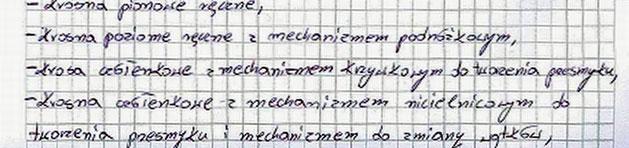 - krosna pionowe ręczne,
- krosna poziome ręczne z mechanizmem podnóżkowym,
- krosa czółenkowe z mechanizmem krzywkowym do tworzenia przesmyku,
- krosna czółenkowe z mechanizmem nicielnicowym do
tworzenia przesmyku i mechanizmem do zmiany wątków,